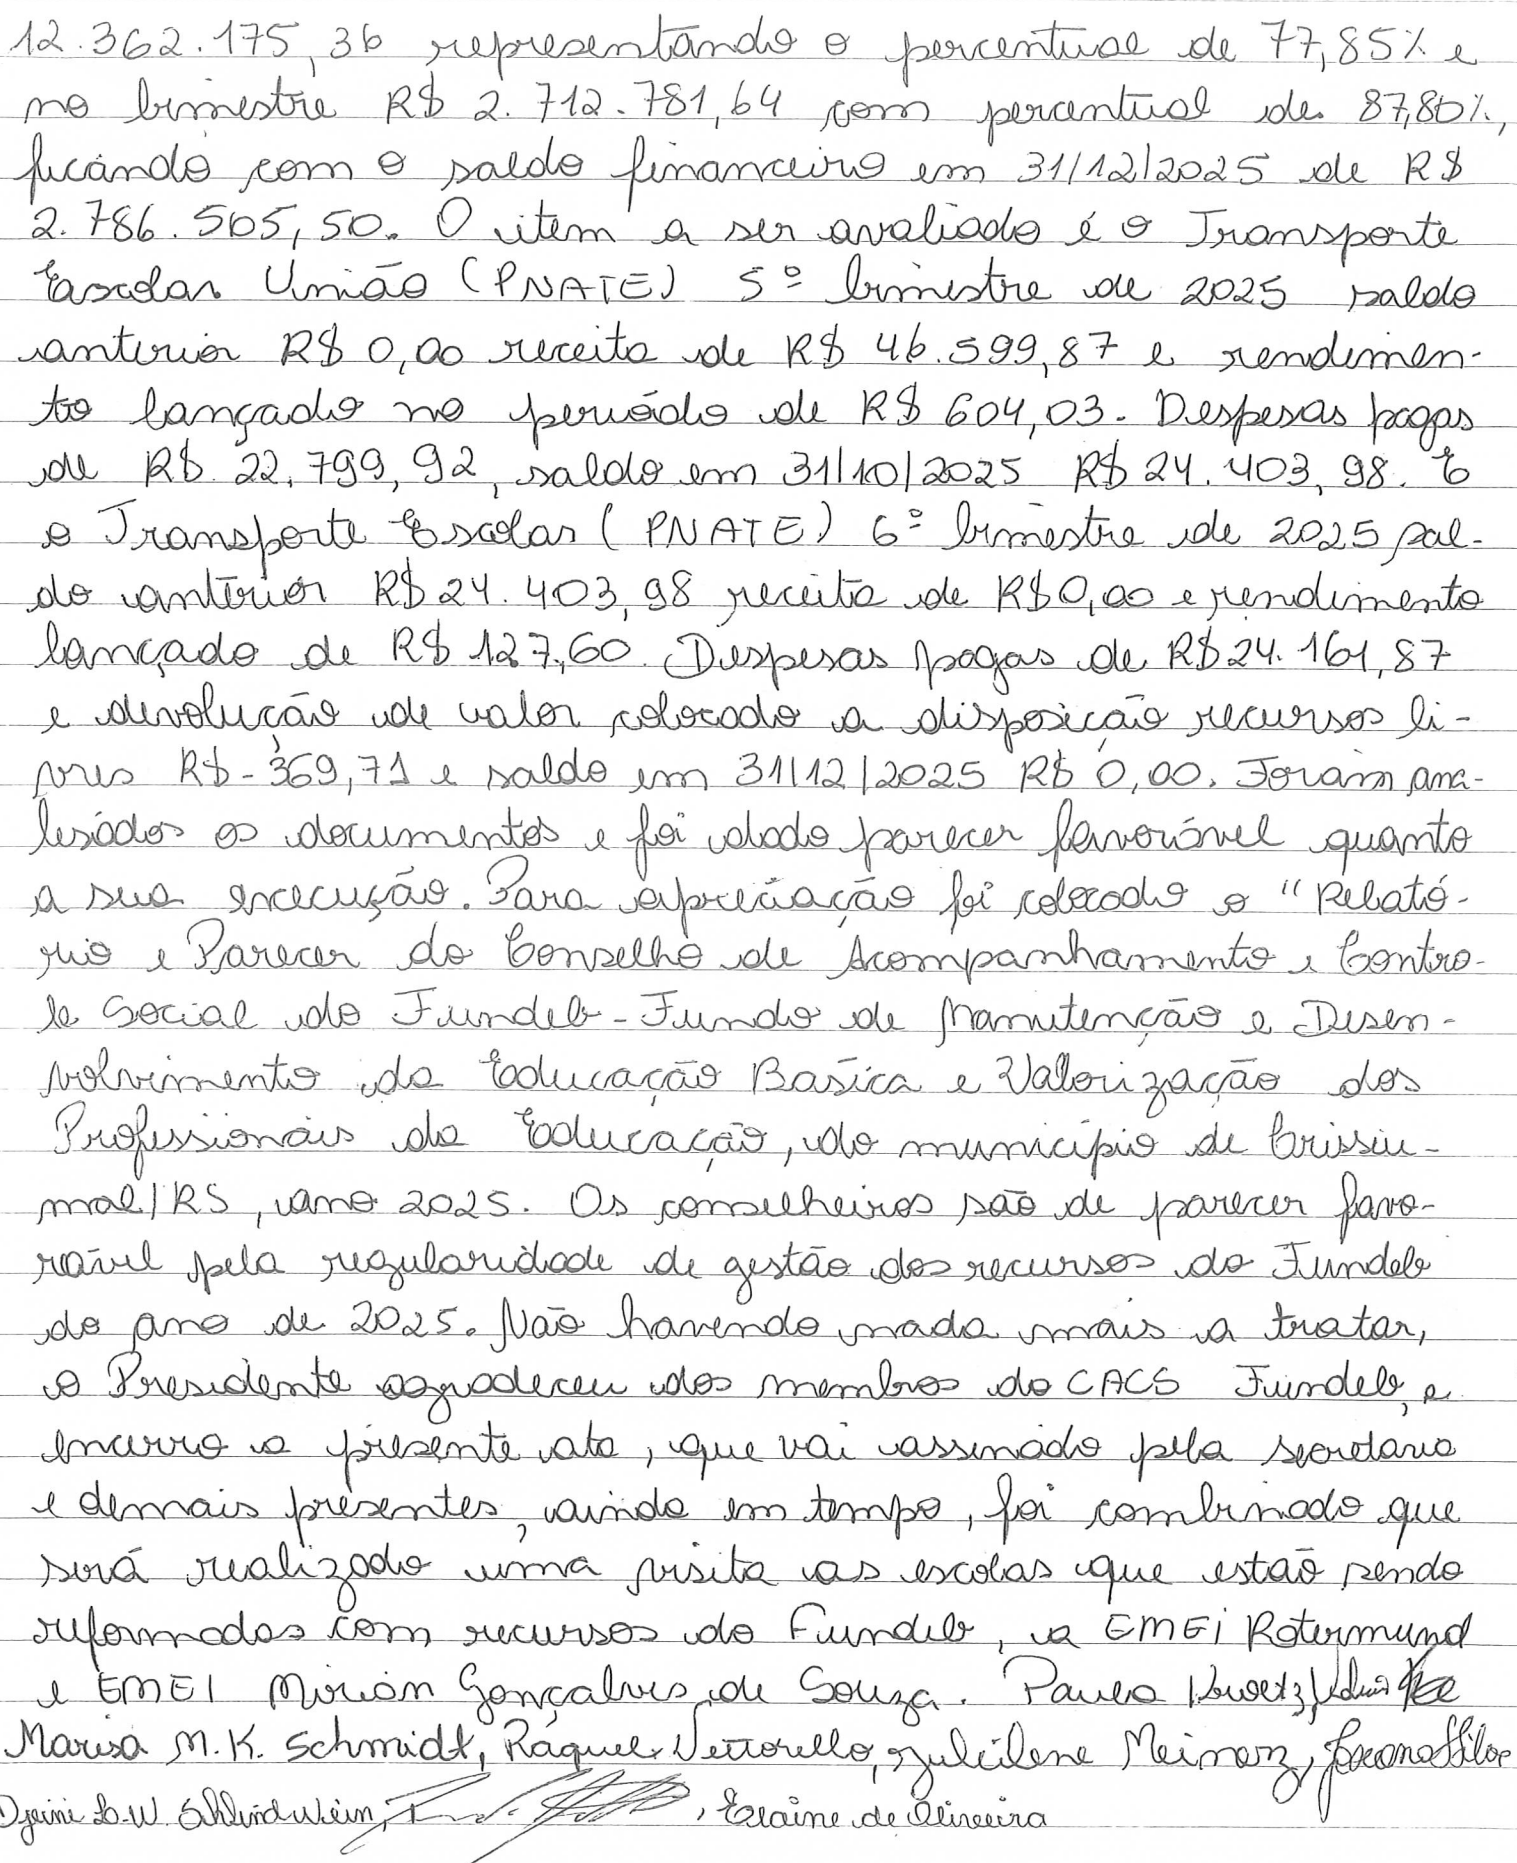 12.362.175,36 representando o percentual de 77,85% e
no bimestre R$ 2.712.781,64 com percentual de 87,80%,
ficando com o saldo financeiro em 31/12/2025 de R$
2.786.505,50. O item a ser avaliado é o Transporte
Escolar União (PNATE) 5º bimestre de 2025 saldo
anterior R$ 0,00 receita de R$ 46.599,87 e rendimen-
to lançado no período de R$ 604,03. Despesas pagas
de R$ 22.799,92, saldo em 31/10/2025 R$ 24.403,98. E
o Transporte Escolar (PNATE) 6º bimestre de 2025 sal-
do anterior R$ 24.403,98 receita de R$ 0,00 e rendimento
lançado de R$ 127,60. Despesas pagas de R$ 24.161,87
e devolução de valor colocado a disposição recursos li-
vres R$ - 369,71 e saldo em 31/12/2025 R$ 0,00. Foram ana-
lisados os documentos e foi dado parecer favorável quanto
a sua execução. Para apreciação foi colocado o "Relató-
rio e Parecer do Conselho de Acompanhamento e Contro-
le Social do Fundeb - Fundo de Manutenção e Desen-
volvimento da Educação Basica e Valorização dos
Profissionais da Educação, do município de Crissiu-
mal/RS, ano 2025. Os conselheiros são de parecer favo-
rável pela regularidade de gestão dos recursos do Fundeb
do ano de 2025. Não havendo nada mais a tratar,
o Presidente agradeceu dos membros do CACS Fundeb, e
encerro a presente ata, que vai assinado pela secretaria
e demais presentes, ainda em tempo, foi combinado que
será realizado uma visita as escolas que estão sendo
reformadas com recursos do Fundeb, a EMEI Rotermund
e EMEI Mirian Gonçalves de Souza. Paula
Marisa M. K. Schmidt, Raquel Vettorello, Julcilene Meinerz,
Schlindwein, , Elaine de Oliveira